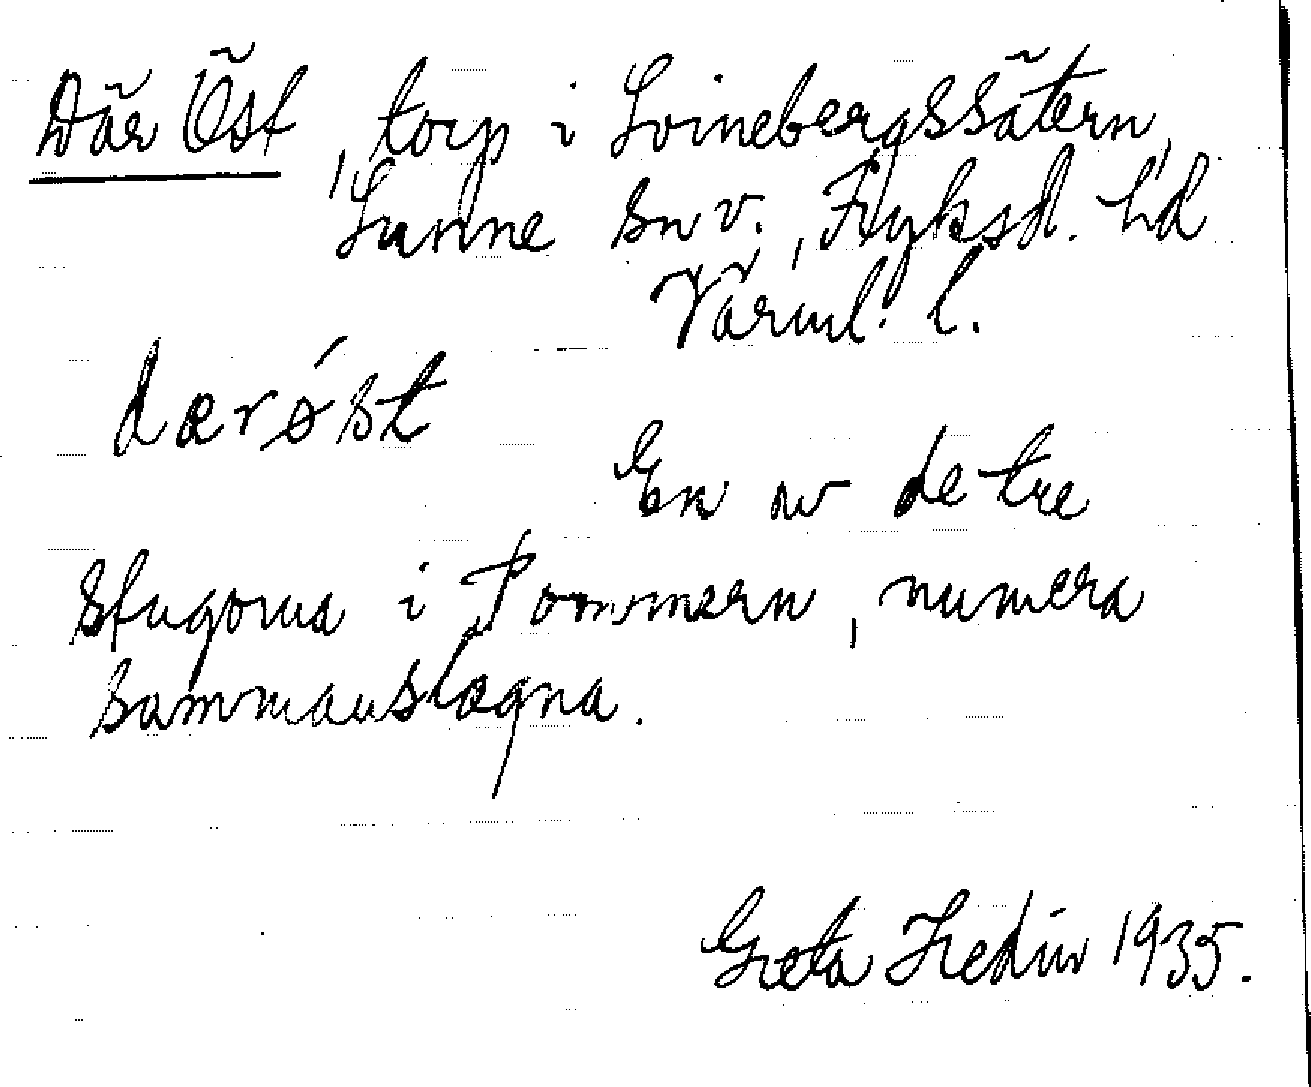 Där Öst, torp i Svinebergssätern,
Sunne sn v., Fryksd. hd
Värml. l.
dærǿst
En av de tre
stugorna i Pommern, numera
sammanslagna.
Greta Hedin 1935.